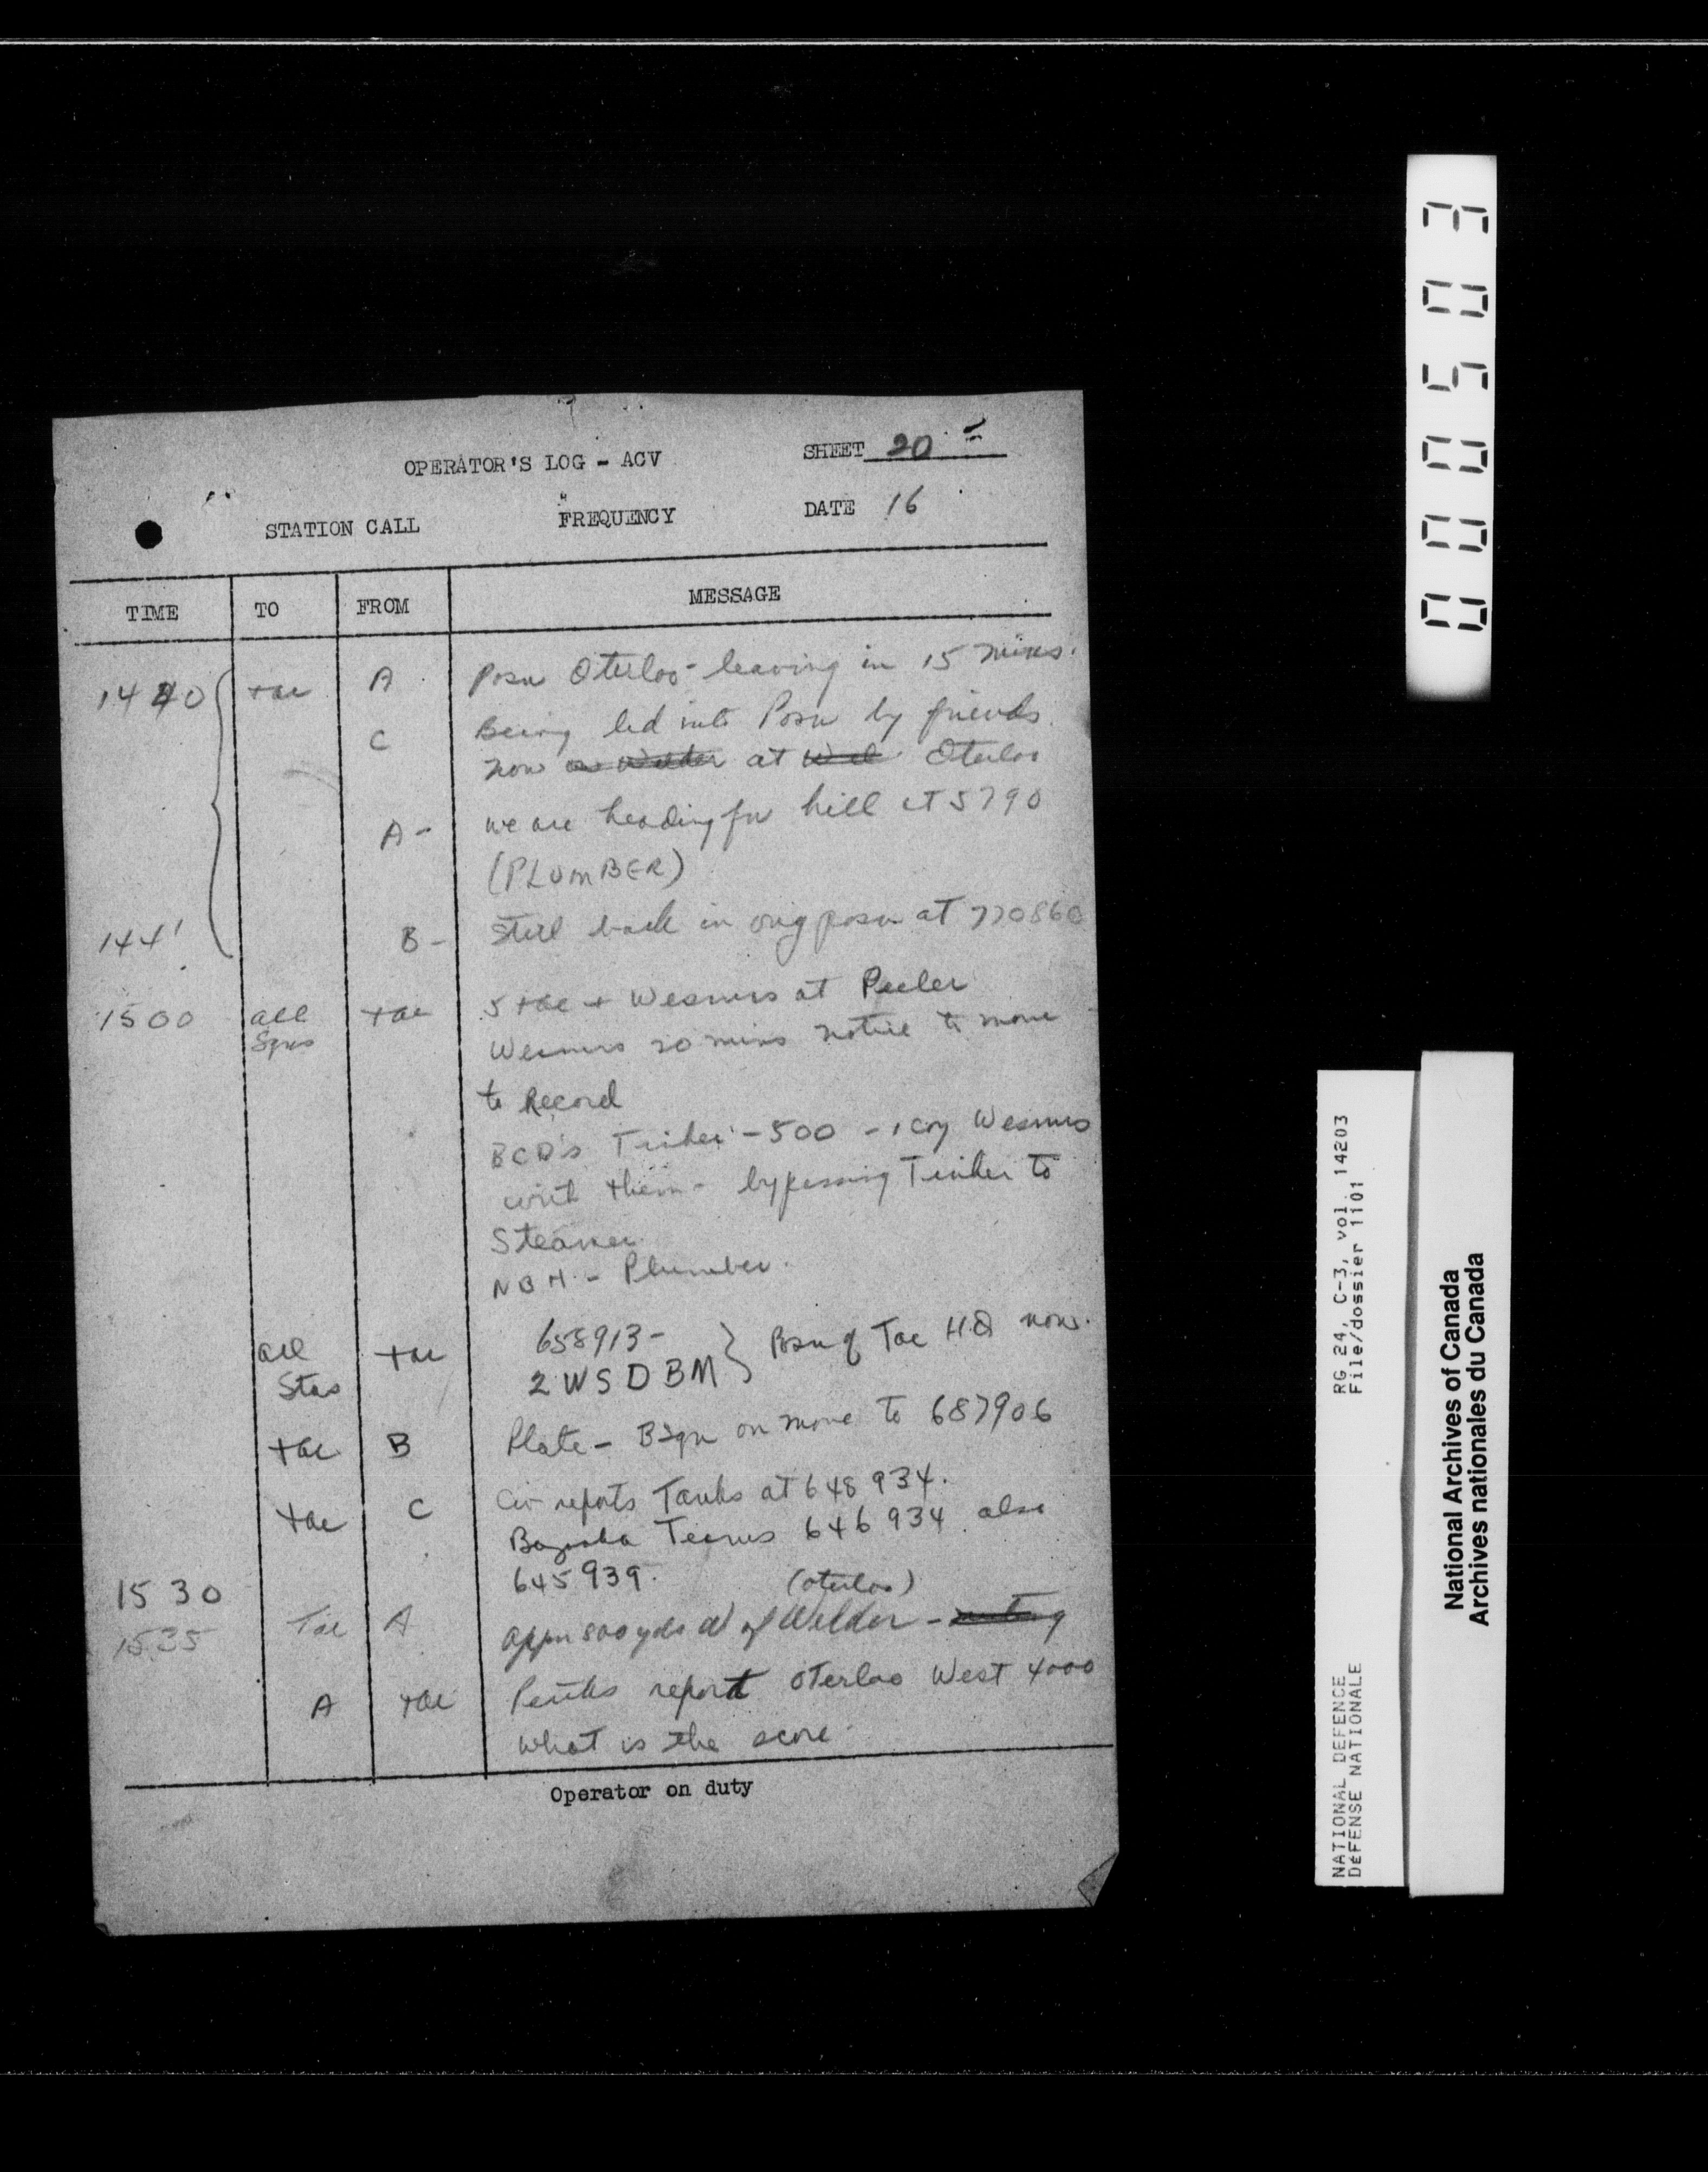 OPERATOR'S LOG - ACV
SHEET 20
STATION CALL FREQUENCY DATE 16
TIME TO FROM MESSAGE
1440 tac A Posn Oterloo - leaving in 15 mins.
C Being led into Posn by friends.
now at Oterloo
A - we are heading for hill at 5790
(PLUMBER)
1441 B - Still back in orig posn at 770860
1500 all tac 5 tac + Wesmrs at Peeler
Sqns Wesmrs 20 mins notice to move
to Record
BCD's Tinker - 500 - 1 coy Wesmrs
with them - bypassing Tinker to
Steamer
NBH - Plumber.
all tac 658913 -
Stas 2 WSDBM } Posn of Tac HQ now.
tac B Plate - B Sqn on move to 687906
tac C Civ reports Tanks at 648934.
Bazooka Teams 646934 also
1530 645939. (oterloo)
1535 Tac A appr 800 yds W of Welder -
A tac Pentks report Oterloo West 4000
what is the score
Operator on duty
000503
RG 24, C-3, vol. 14203
File/dossier 1101
NATIONAL DEFENCE
DÉFENSE NATIONALE
National Archives of Canada
Archives nationales du Canada